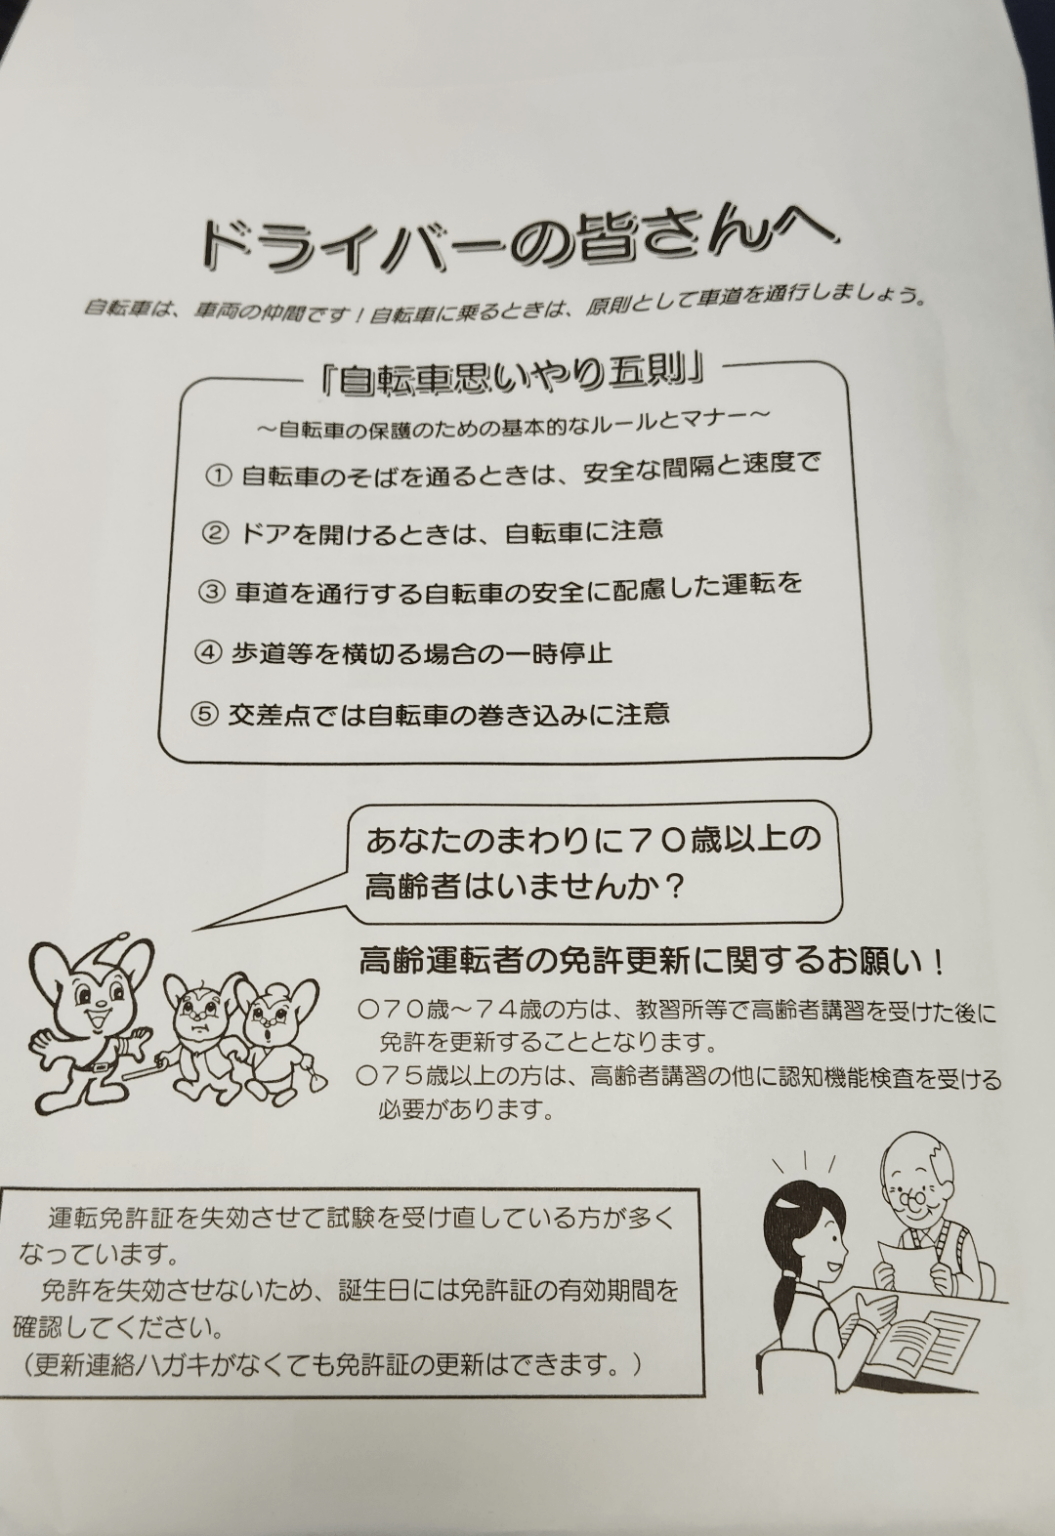 ドライバーの皆さんへ
自転車は、車両の仲間です！自転車に乗るときは、原則として車道を通行しましょう。
「自転車思いやり五則」
～自転車の保護のための基本的なルールとマナー～
① 自転車のそばを通るときは、安全な間隔と速度で
② ドアを開けるときは、自転車に注意
③ 車道を通行する自転車の安全に配慮した運転を
④ 歩道等を横切る場合の一時停止
⑤ 交差点では自転車の巻き込みに注意
あなたのまわりに７０歳以上の
高齢者はいませんか？
高齢運転者の免許更新に関するお願い！
○７０歳～７４歳の方は、教習所等で高齢者講習を受けた後に
免許を更新することとなります。
○７５歳以上の方は、高齢者講習の他に認知機能検査を受ける
必要があります。
運転免許証を失効させて試験を受け直している方が多く
なっています。
免許を失効させないため、誕生日には免許証の有効期間を
確認してください。
（更新連絡ハガキがなくても免許証の更新はできます。）